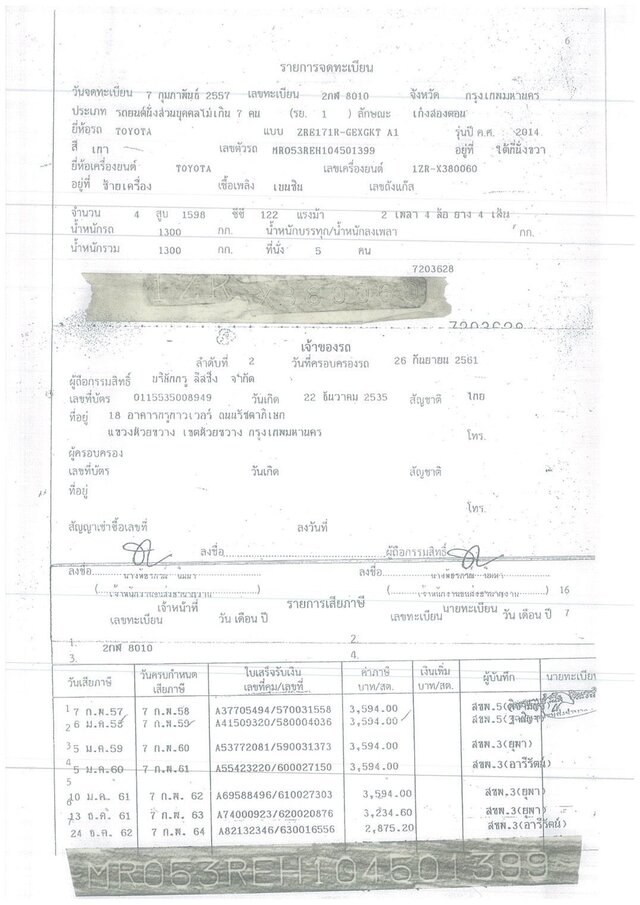 6
รายการจดทะเบียน
วันจดทะเบียน 7 กุมภาพันธ์ 2557 เลขทะเบียน 2กฬ 8010 จังหวัด กรุงเทพมหานคร
ประเภท รถยนต์นั่งส่วนบุคคลไม่เกิน 7 คน (รย. 1 ) ลักษณะ เก๋งสองตอน
ยี่ห้อรถ TOYOTA แบบ ZRE171R-GEXGKT A1 รุ่นปี ค.ศ. 2014
สี เทา เลขตัวรถ MR053REH104501399 อยู่ที่ ใต้ที่นั่งขวา
ยี่ห้อเครื่องยนต์ TOYOTA เลขเครื่องยนต์ 1ZR-X380060
อยู่ที่ ซ้ายเครื่อง เชื้อเพลิง เบนซิน เลขถังแก๊ส
จำนวน 4 สูบ 1598 ซีซี 122 แรงม้า 2 เพลา 4 ล้อ ยาง 4 เส้น
น้ำหนักรถ 1300 กก. น้ำหนักบรรทุก/น้ำหนักลงเพลา กก.
น้ำหนักรวม 1300 กก. ที่นั่ง 5 คน
7203628
7203628
เจ้าของรถ
ลำดับที่ 2 วันที่ครอบครองรถ 26 กันยายน 2561
ผู้ถือกรรมสิทธิ์ บริษัทกรุ ลิสซิ่ง จำกัด
เลขที่บัตร 0115535008949 วันเกิด 22 ธันวาคม 2535 สัญชาติ ไทย
ที่อยู่ 18 อาคาร ถนนรัชดาภิเษก
แขวงห้วยขวาง เขตห้วยขวาง กรุงเทพมหานคร โทร.
ผู้ครอบครอง
เลขที่บัตร วันเกิด สัญชาติ
ที่อยู่
โทร.
สัญญาเช่าซื้อเลขที่ ลงวันที่
ลงชื่อ ผู้ถือกรรมสิทธิ์
ลงชื่อ ลงชื่อ
16
เจ้าหน้าที่ รายการเสียภาษี นายทะเบียน
เลขทะเบียน วัน เดือน ปี เลขทะเบียน วัน เดือน ปี 7
1. 2กฬ 8010 2.
3. 4.
วันเสียภาษี วันครบกำหนดเสียภาษี ใบเสร็จรับเงิน เลขที่คุม/เลขที่ ค่าภาษี บาท/สต. เงินเพิ่ม บาท/สต. ผู้บันทึก นายทะเบียน
1 7 ก.พ.57 7 ก.พ.58 A37705494/570031558 3,594.00 สขพ.5
2 6 ม.ค.58 7 ก.พ.59 A41509320/580004036 3,594.00 สขพ.5
3 5 ม.ค.59 7 ก.พ.60 A53772081/590031373 3,594.00 สขพ.3(ยุพา)
4 5 ม.ค.60 7 ก.พ.61 A55423220/600027150 3,594.00 สขพ.3(อารีรัตน์)
5
10 ม.ค. 61 7 ก.พ. 62 A69588496/610027303 3,594.00 สขพ.3(ยุพา)
13 ธ.ค. 61 7 ก.พ. 63 A74000923/620020876 3,234.60 สขพ.3(ยุพา)
24 ธ.ค. 62 7 ก.พ. 64 A82132346/630016556 2,875.20 สขพ.3(อารีรัตน์)
MR053REH104501399